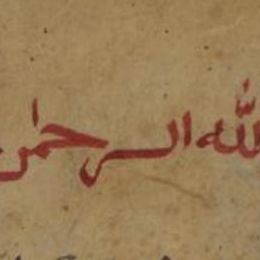 الله الرحمن